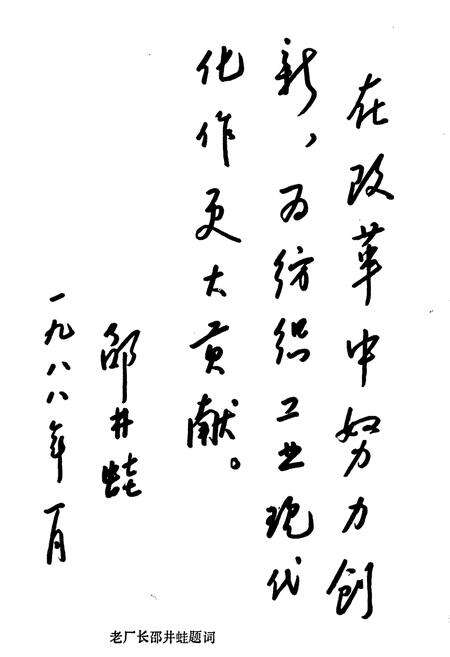 在改革中努力创
新，为纺织工业现代
化作更大贡献。
邵井蛙
一九八八年一月
老厂长邵井蛙题词